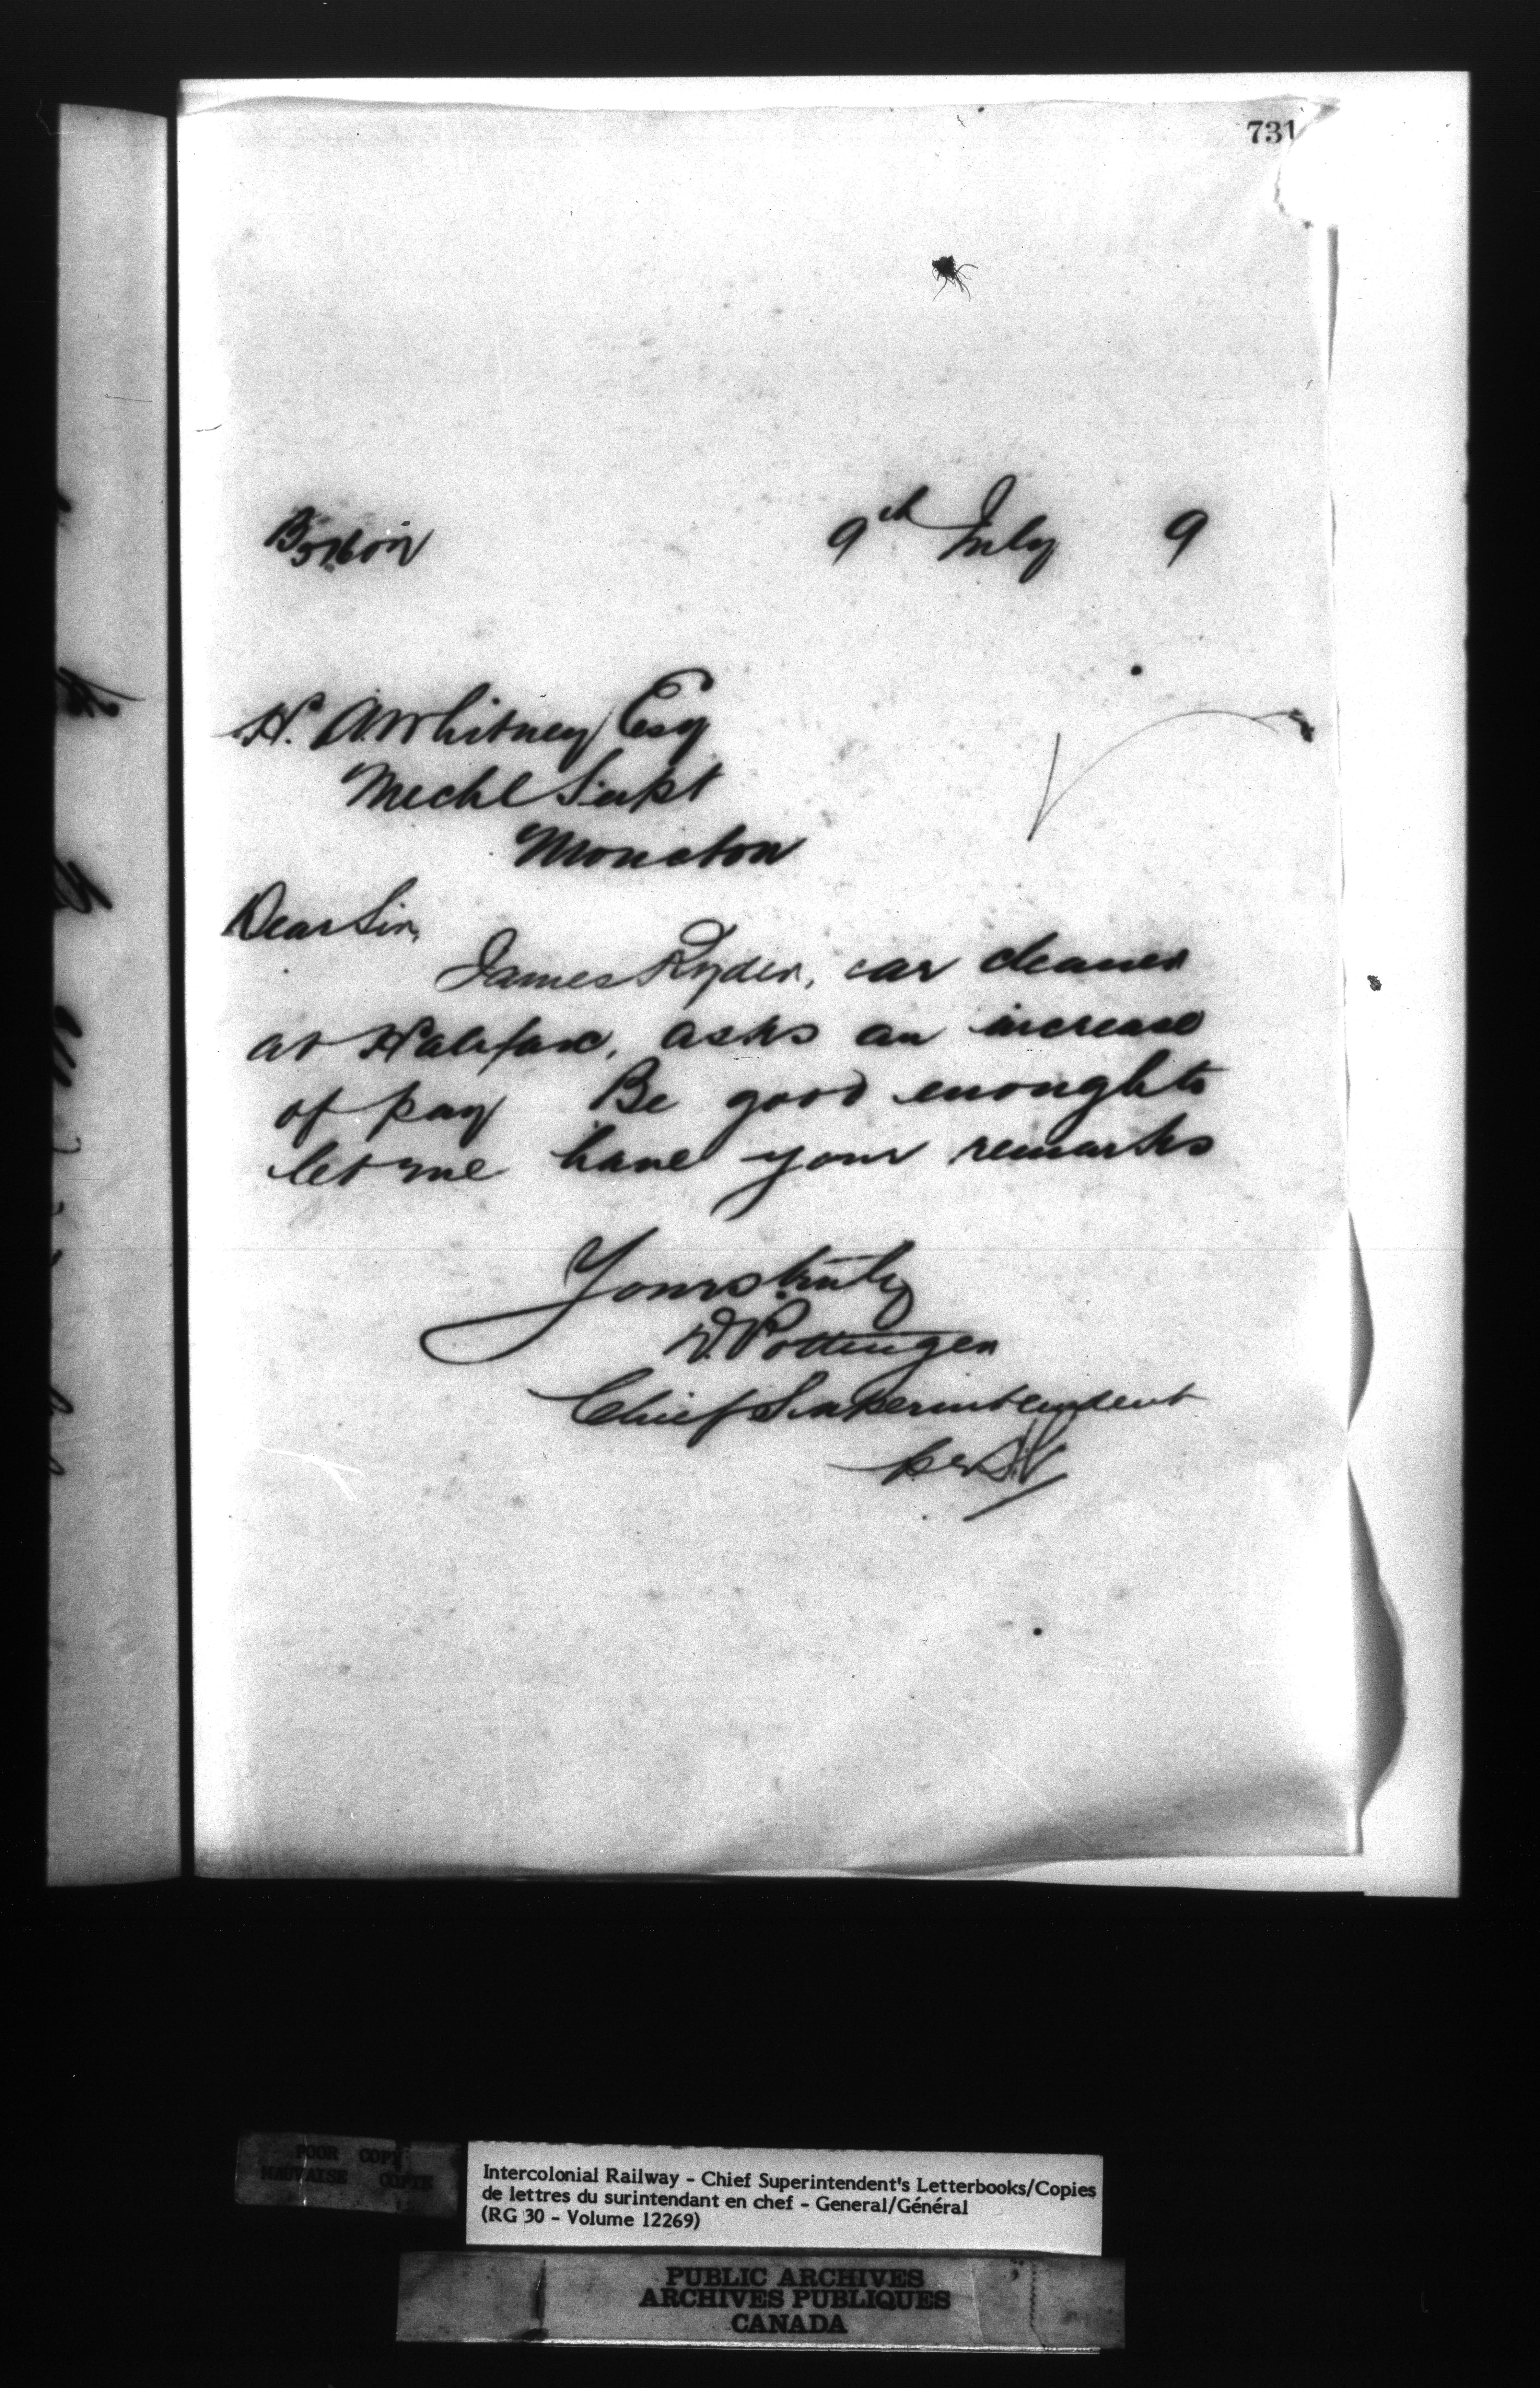 731
9th July 9
H. A. Whitney Esq
Mechl Supt
Moncton
Dear Sir,
James Ryder, car cleaner
at Halifax, asks an increase
of pay Be good enough to
let me have your remarks
Yours truly
D. Pottinger
Chief Superintendent
per
POOR COPY
MAUVAISE COPIE
Intercolonial Railway - Chief Superintendent's Letterbooks/Copies
de lettres du surintendant en chef - General/Général
(RG 30 - Volume 12269)
PUBLIC ARCHIVES
ARCHIVES PUBLIQUES
CANADA